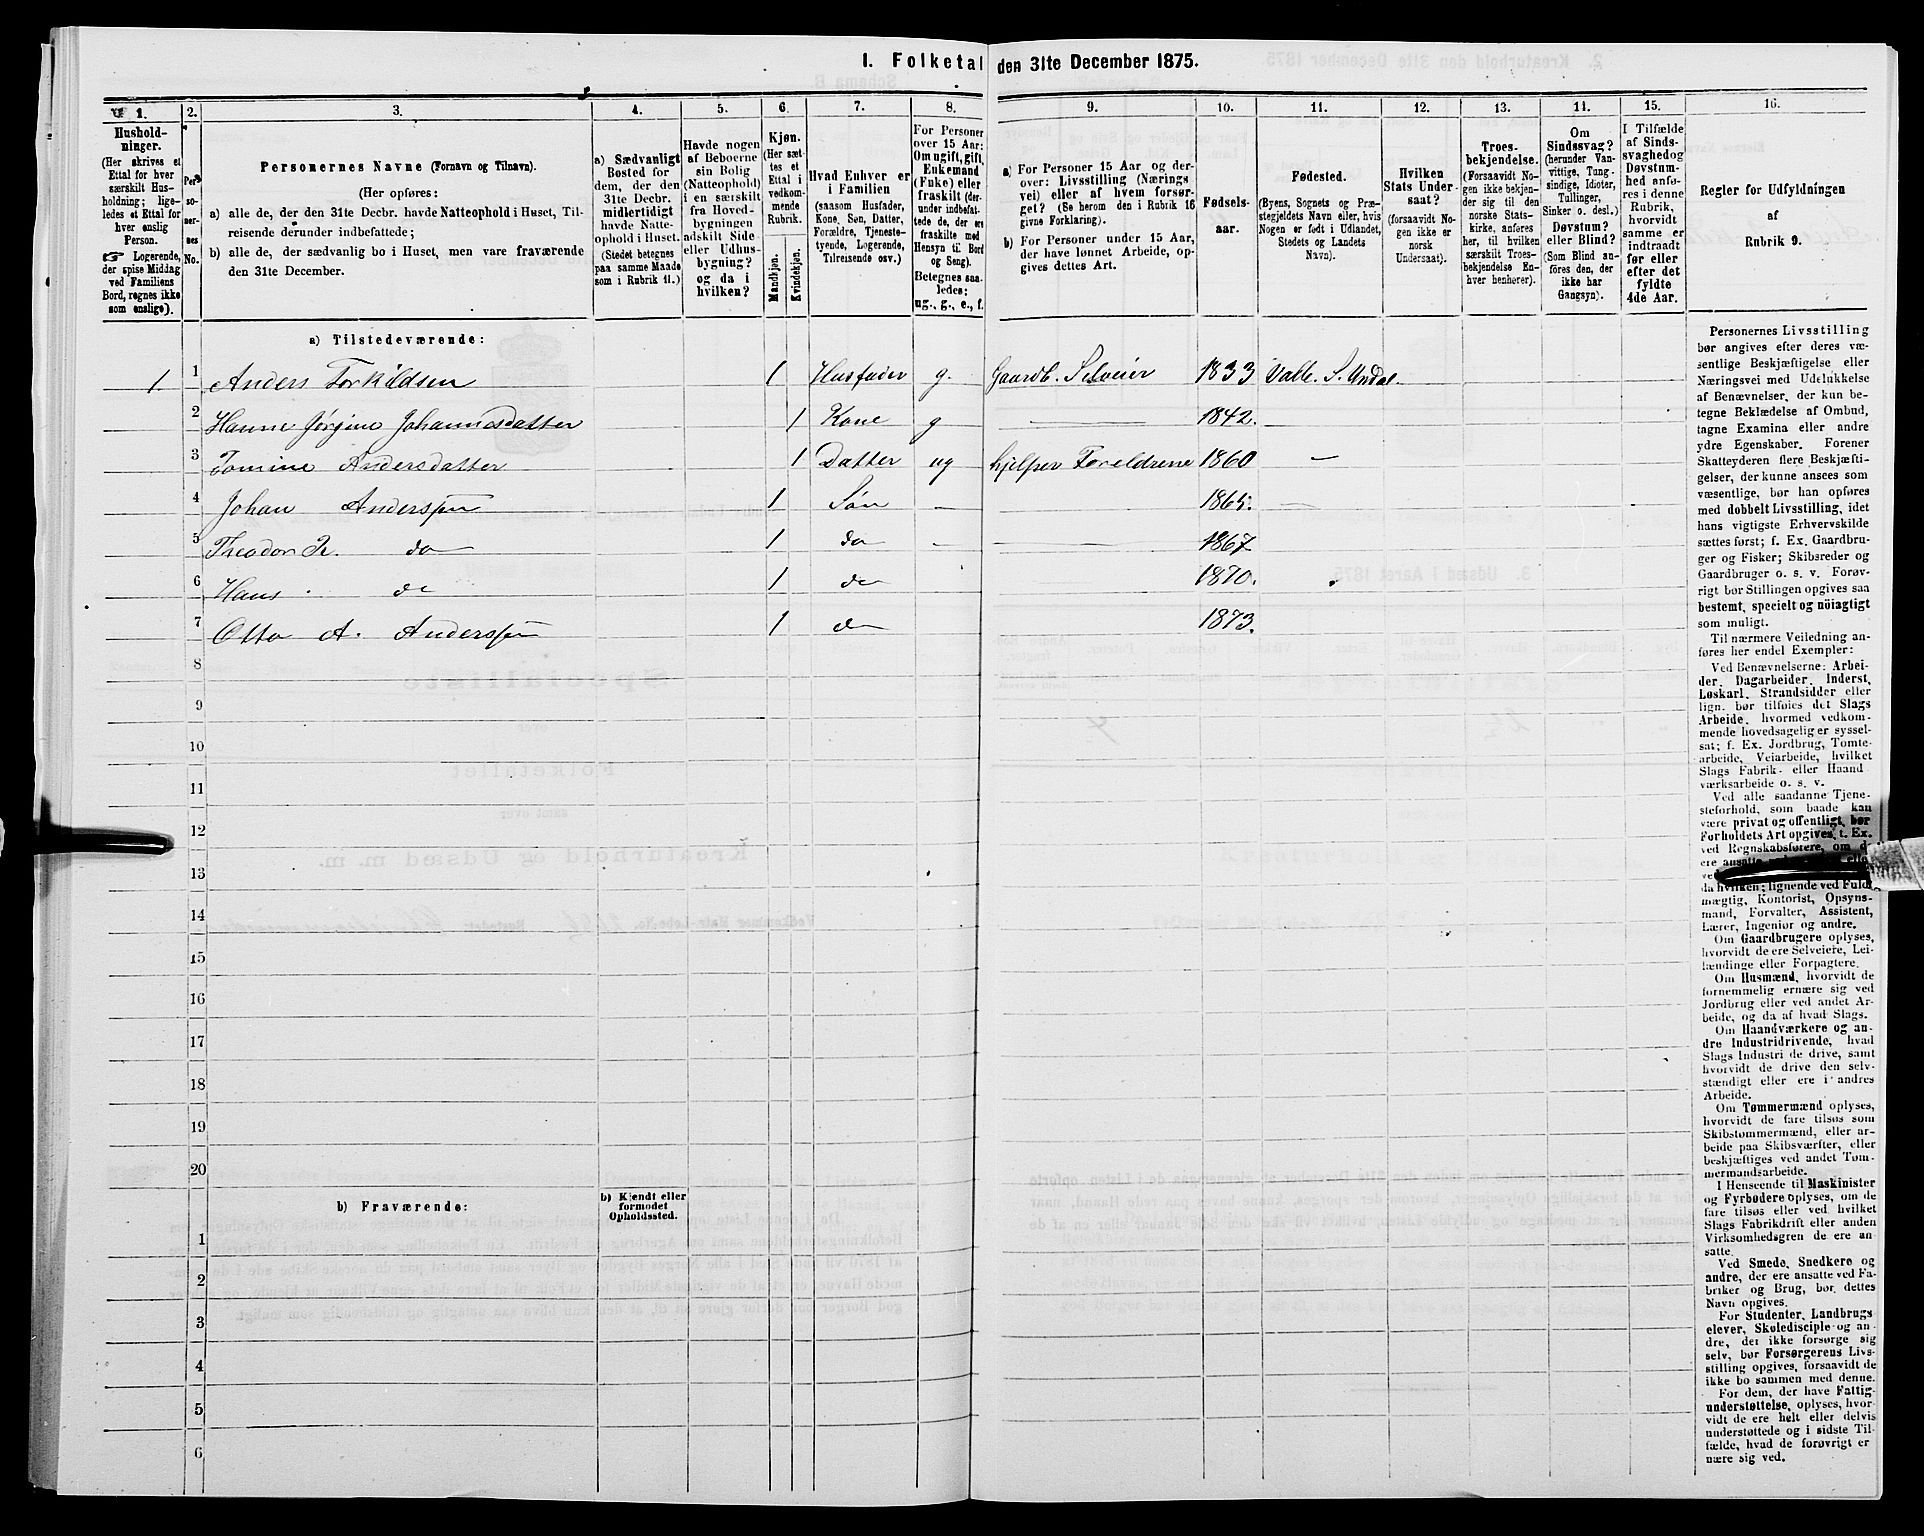 I. Folketal den 31te December 1875.
1.
Hushold-
ninger.
(Her skrives et
Ettal for hver
særskilt Hus-
holdning; lige-
ledes et Ettal for
hver enslig
Person.
☞ Logerende,
der spise Middag
ved Familiens
Bord, regnes ikke
som enslige).
2.
Per-
so-
ner-
nes
No.
3.
Personernes Navne (Fornavn og Tilnavn).
(Her opføres:
a) alle de, der den 31te Decbr. havde Natteophold i Huset, Til-
reisende derunder indbefattede;
b) alle de, der sædvanlig bo i Huset, men vare fraværende
den 31te December.
4.
a) Sædvanligt
Bosted for
dem, der den
31te Decbr.
midlertidigt
havde Natte-
ophold i Huset.
(Stedet betegnes
paa samme Maade
som i Rubrik 11.)
5.
Havde nogen
af Beboerne
sin Bolig
(Natteophold)
i en særskilt
fra Hoved-
bygningen
adskilt Side-
eller Udhus-
bygning?
og da i
hvilken?
6.
Kjøn.
(Her sæt-
tes et
Ettal i
vedkom-
mende
Rubrik.
Mandkjøn.
Kvindekjøn.
7.
Hvad Enhver er
i Familien
(saasom Husfader,
Kone, Søn, Datter,
Forældre, Tjeneste-
tyende, Logerende,
Tilreisende osv.)
8.
For Personer
over 15 Aar:
Om ugift, gift,
Enkemand
(Fuke) eller
fraskilt (der-
under indbefat-
tede de, der ere
fraskilte med
Hensyn til Bord
og Seng).
Betegnes saa-
ledes:
ug., g., e., f.
9.
a) For Personer 15 Aar og der-
over: Livsstilling (Nærings-
vei) eller af hvem forsør-
get? (Se herom den i Rubrik 16
givne Forklaring).
b) For Personer under 15 Aar,
der have lønnet Arbeide, op-
gives dettes Art.
10.
Fødsels-
aar.
11.
Fødested.
(Byens, Sognets og Præ-
stegjeldets Navn eller, hvis
Nogen er født i Udlandet,
Stedets og Landets
Navn).
12.
Hvilken
Stats Under-
saat?
(forsaavidt No-
gen ikke er
norsk
Undersaat).
13.
Troes-
bekjendelse.
(Forsaavidt No-
gen ikke bekjen-
der sig til den
norske Stats-
kirke, anføres
her, til hvilken
særskilt Troes-
bekjendelse En-
hver henhører).
11.
Om
Sindssvag?
(herunder Van-
vittige, Tung-
sindige, Idioter,
Tullinger,
Sinker o. desl.)
Døvstum?
eller Blind?
(Som Blind an-
føres den, der
ikke har
Gangsyn).
15.
I Tilfælde
af Sinds-
svaghed og
Døvstum-
hed anfø-
res i denne
Rubrik,
hvorvidt
samme er
indtraadt
før eller
efter det
fyldte
4de Aar.
16.
Regler for Udfyldningen
af
Rubrik 9.
a) Tilstedeværende:
1 1 Anders Torkildsen 1 Husfader g. Gaardb. Selveier 1833 Valle. S. Undal.
2 Hanne Jørgine Johannesdatter 1 Kone g — 1842. —
3 Tomine Andersdatter 1 Datter ug hjelper Foreldrene 1860 —
4 Johan Anderssøn 1 Søn — 1865. —
5 Theodor K. do 1 do — 1867
6 Hans do 1 do 1870.
7 Otto A. Anderssøn 1 do 1873.
8
9
10
11
12
13
14
15
16
17
18
19
20
b) Fraværende:
b) Kjendt eller
formodet
Opholdssted.
1
2
3
4
5
6
Personernes Livsstilling
bør angives efter deres væ-
sentlige Beskjæftigelse eller
Næringsvei med Udelukkelse
af Benævnelser, der kun be-
tegne Beklædelse af Ombud,
tagne Examina eller andre
ydre Egenskaber. Forener
Skatteyderen flere Beskjæfti-
gelser, der kunne ansees som
væsentlige, bør han opføres
med dobbelt Livsstilling, idet
hans vigtigste Erhvervskilde
sættes først; f. Ex. Gaardbru-
ger og Fisker; Skibsreder og
Gaardbruger o. s. v. Forøv-
rigt bør Stillingen opgives saa
bestemt, specielt og nöiagtigt
som muligt.
Til nærmere Veiledning an-
føres her endel Exempler:
Ved Benævnelserne: Arbei-
der, Dagarbeider, Inderst,
Løskarl, Strandsidder eller
lign. bør tilføies det Slags
Arbeide, hvormed vedkom-
mende hovedsagelig er syssel-
sat; f. Ex. Jordbrug, Tomte-
arbeide, Veiarbeide, hvilket
Slags Fabrik- eller Haand-
værksarbeide o. s. v.
Ved alle saadanne Tjene-
steforhold, som baade kan
være privat og offentligt, bør
Forholdets Art opgives, t. Ex.
ved Regnskabsførere, om de
ere ansatte
da hvilken; lignende ved Fuld-
mægtig, Kontorist, Opsyns-
mand, Forvalter, Assistent,
Lærer, Ingeniør og andre.
Om Gaardbrugere oplyses,
hvorvidt de ere Selveiere, Lei-
lændinge eller Forpagtere.
Om Husmænd, hvorvidt de
fornemmelig ernære sig ved
Jordbrug eller ved andet Ar-
beide, og da af hvad Slags.
Om Haandværkere og an-
dre Industridrivende, hvad
Slags Industri de drive, samt
hvorvidt de drive den selv-
stændigt eller ere i andres
Arbeide.
Om Tømmermænd oplyses,
hvorvidt de fare tilsøs som
Skibstømmermænd, eller ar-
beide paa Skibsværfter, eller
beskjæftiges ved andet Tøm-
mermandsarbeide.
I Henseende til Maskinister
og Fyrbødere oplyses, om de
fare tilsøs eller ved hvilket
Slags Fabrikdrift eller anden
Virksomhedsgren de ere an-
satte.
Ved Smede, Snedkere og
andre, der ere ansatte ved Fa-
briker og Brug, bør dettes
Navn opgives.
For Studenter, Landbrugs-
elever, Skoledisciple og an-
dre, der ikke forsørge sig
selv, bør Forsørgerens Livs-
stilling opgives, forsaavidt de
ikke bo sammen med denne.
For dem, der have Fattig-
understøttelse, oplyses, hvor-
vidt de ere helt eller delvis
understøttede og i sidste Til-
fælde, hvad de forøvrigt er-
nære sig ved.